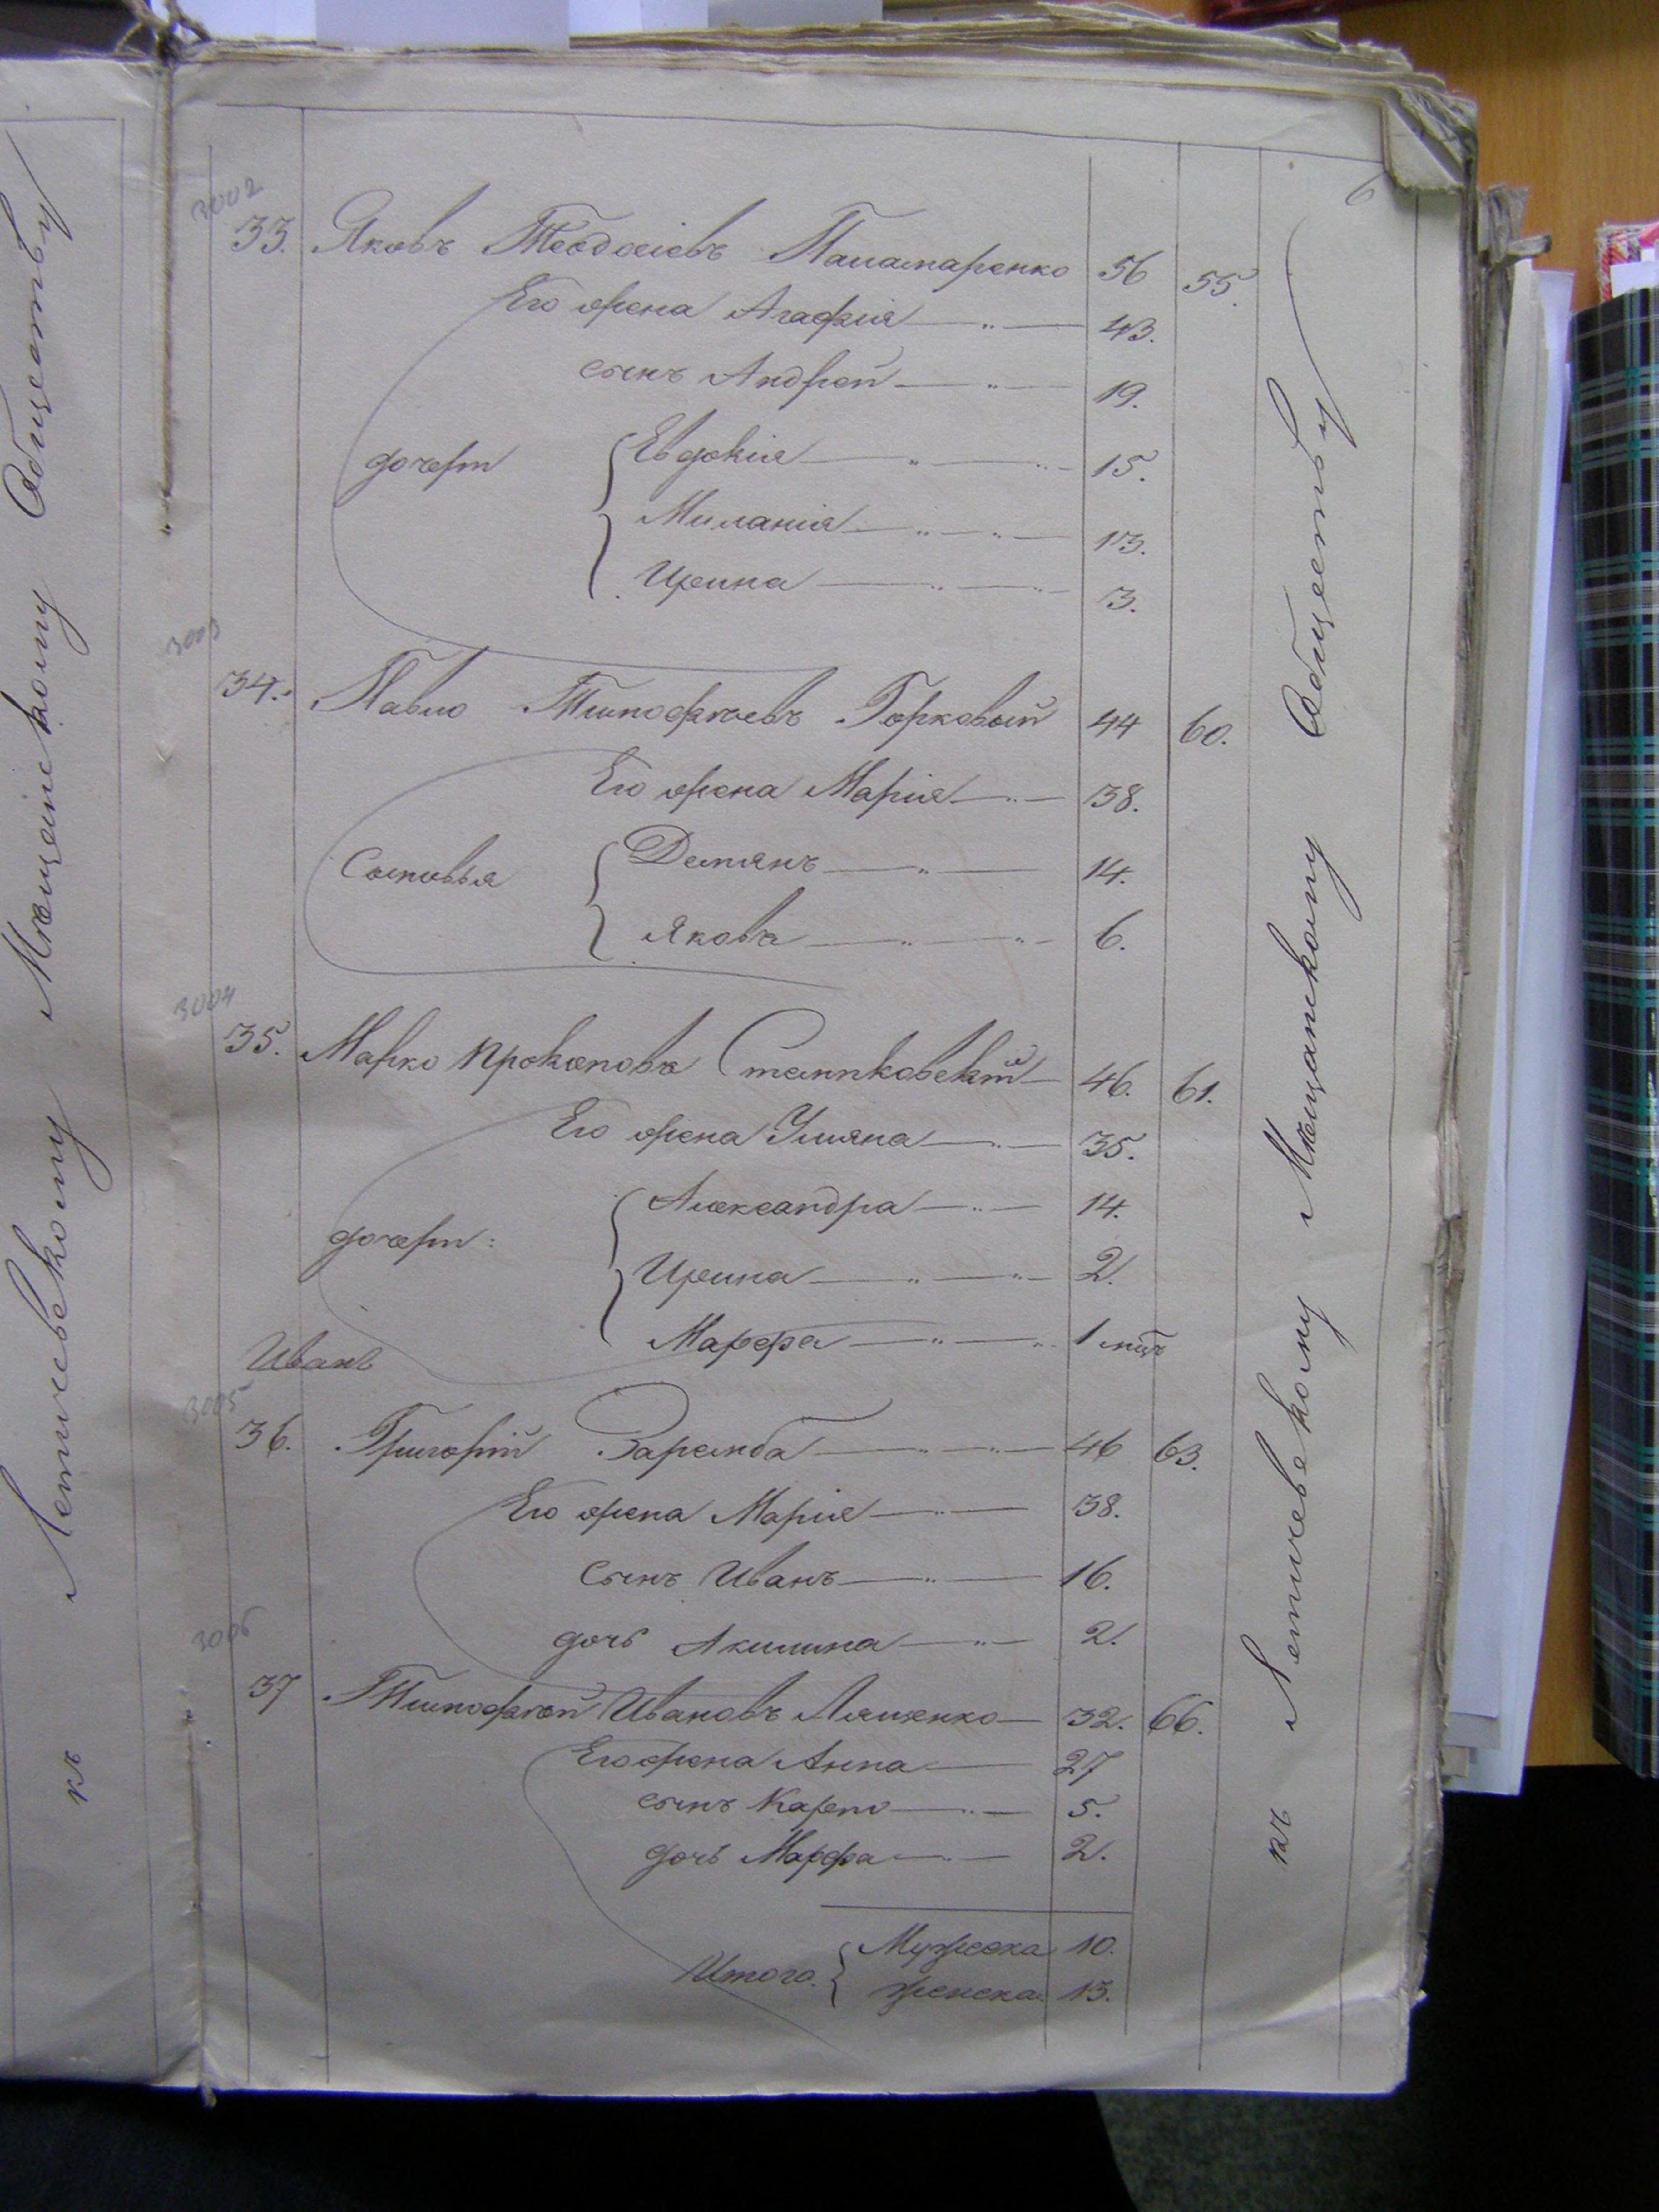 6
3002
33. Яковъ Теодосіевъ Паламаренко 56 55.
Его жена Агафія 43.
сынъ Андрей 19.
дочери Евдокія 15.
Миланія 13.
Ирина 3.
3003
34. Павло Тимофѣевъ Горковый 44 60.
Его жена Марія 38.
Сыновья Демянъ 14.
Яковъ 6.
3004
35. Марко Прокоповъ Станковскій 46. 61.
Его жена Уляна 35.
дочери: Александра 14.
Ирина 2.
Марфа 1 мцъ
Иванъ
3005
36. Григорій Заремба 46 63.
Его жена Марія 38.
сынъ Иванъ 16.
дочь Акилина 2.
3006
37 Тимофѣй Ивановъ Ляшенко 32. 66.
Его жена Анна 27
сынъ Карпо 5.
дочь Марфа 2.
Итого. Мужеска 10.
женска 13.
къ Летичевскому Мѣщанскому Обществу
къ Летичевскому Мѣщанскому Обществу